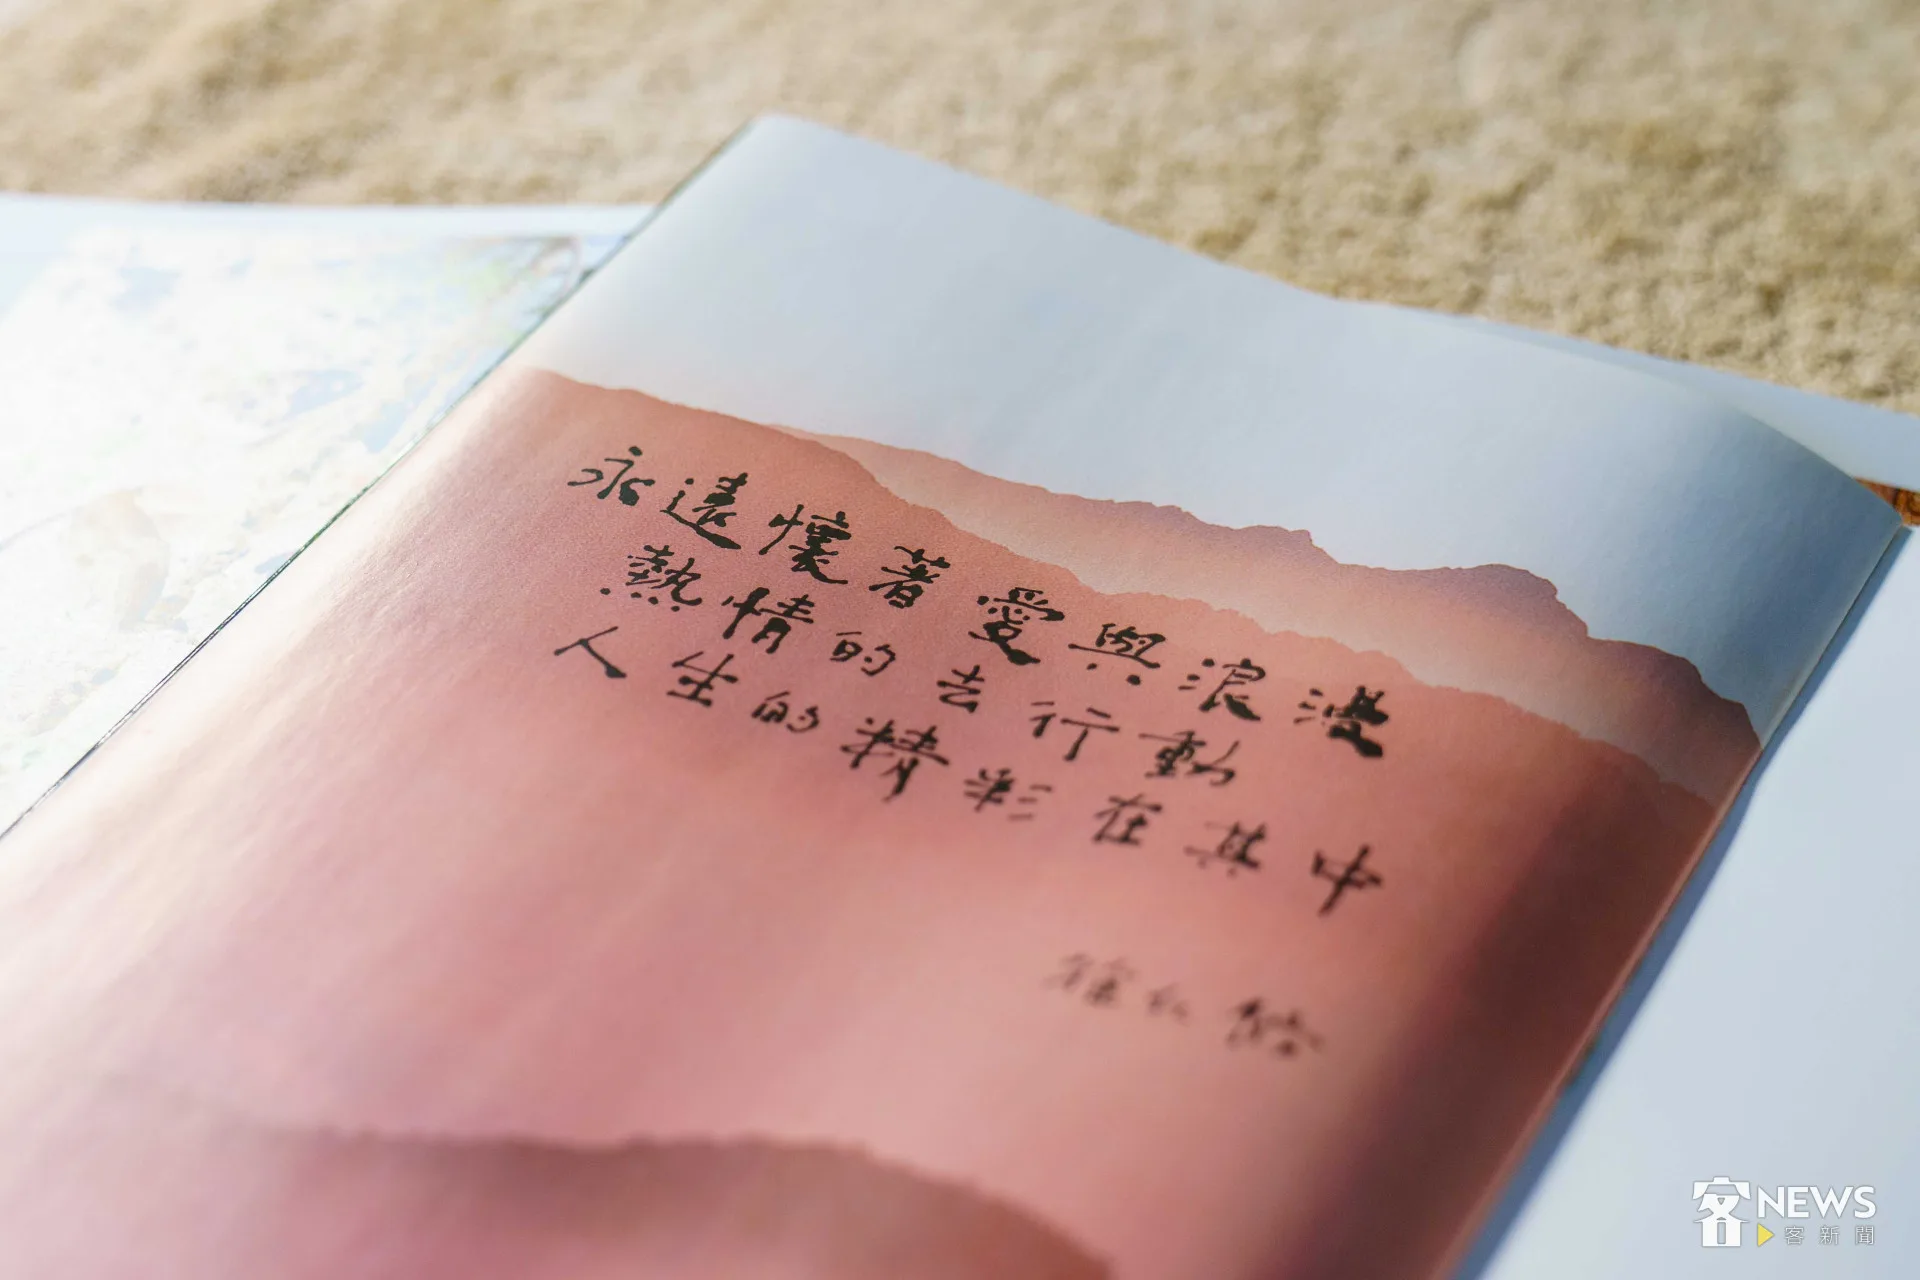 永遠懷著愛與浪漫
熱情的去行動
人生的精彩在其中
徐仁
客NEWS
客新聞